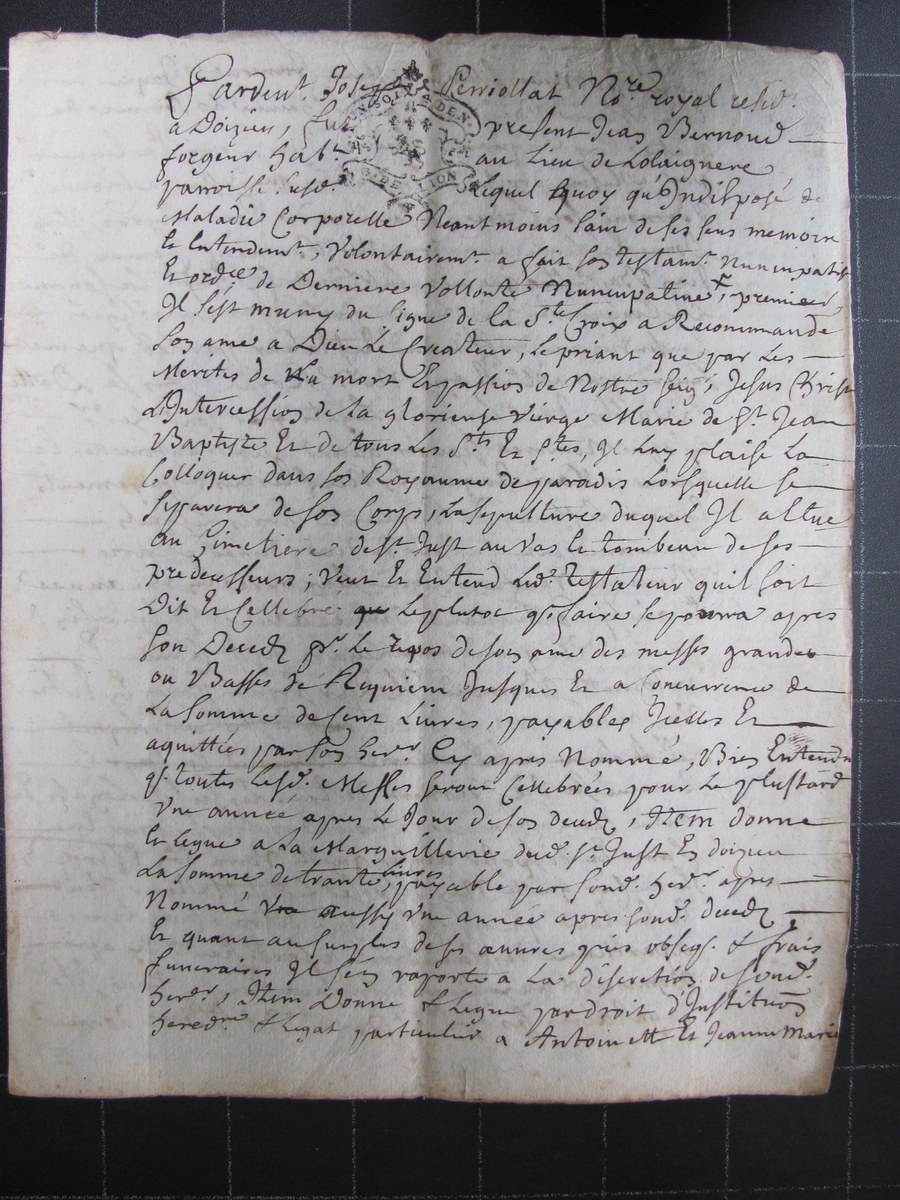 Pardevt. Joseph Perriollat Nore. royal resid.
a Doizieu, fut present Jean Bernoud
forgeur habt. au Lieu de Lolaignere
parroisse susd. Lequel quoy qu'Indisposé de
Maladie Corporelle Neantmoins sain de ses sens memoire
Et Entendemt. Volontairemt. a fait son testamt. nuncupatif
Et ordce. de Derniere Vollonté Nuncupative, premierd
Il s'est muny du signe de la Ste. Croix a Recommandé
Son ame a Dieu Le Createur, Le priant que par Les
Merites de La mort Et passion de Nostre seigr. Jesus Christ
L'Intercession de La glorieuse Vierge Marie de St. Jean
Baptiste Et de tous Les Sts. Et Stes, Il Luy plaise La
Colloquer dans son Royaume de paradis Lorsquelle se
separera de son Corps, La sepulture duquel Il a Elue
au Cimetiere de St. Just au Vas Et tombeau de ses
predecesseurs; Veut Et Entend Led. Testateur quil soit
Dit Et Cellebré Le plutot q. faire se pourra apres
son Deced pr. Le repos de son ame des messes grandes
ou Basses de Requiem Jusques Et a Concurrence de
La somme de Cent Livres, payables Icelles Et
aquittées par son herr. Cy apres Nommé, Bien Entendu
q. toutes Lesd. Messes seront Cellebrées pour Le plustard
Une année apres Le Jour de son deced, Item donne
Et Legue a La Marguillerie dud. St. Just En doizieu
La somme de trante Livres, payable par sond. herr. apres
Nommé aussy Une année apres sond. deced
Et quant au surplus de ses œuvres pies obseq. & frais
funeraires Il s'en raporte a La discretion de sond.
herer, Item Donne & Legue par droit d'Institution
heredre. & Legat particulier a Antoinette Et Jeanne Marie